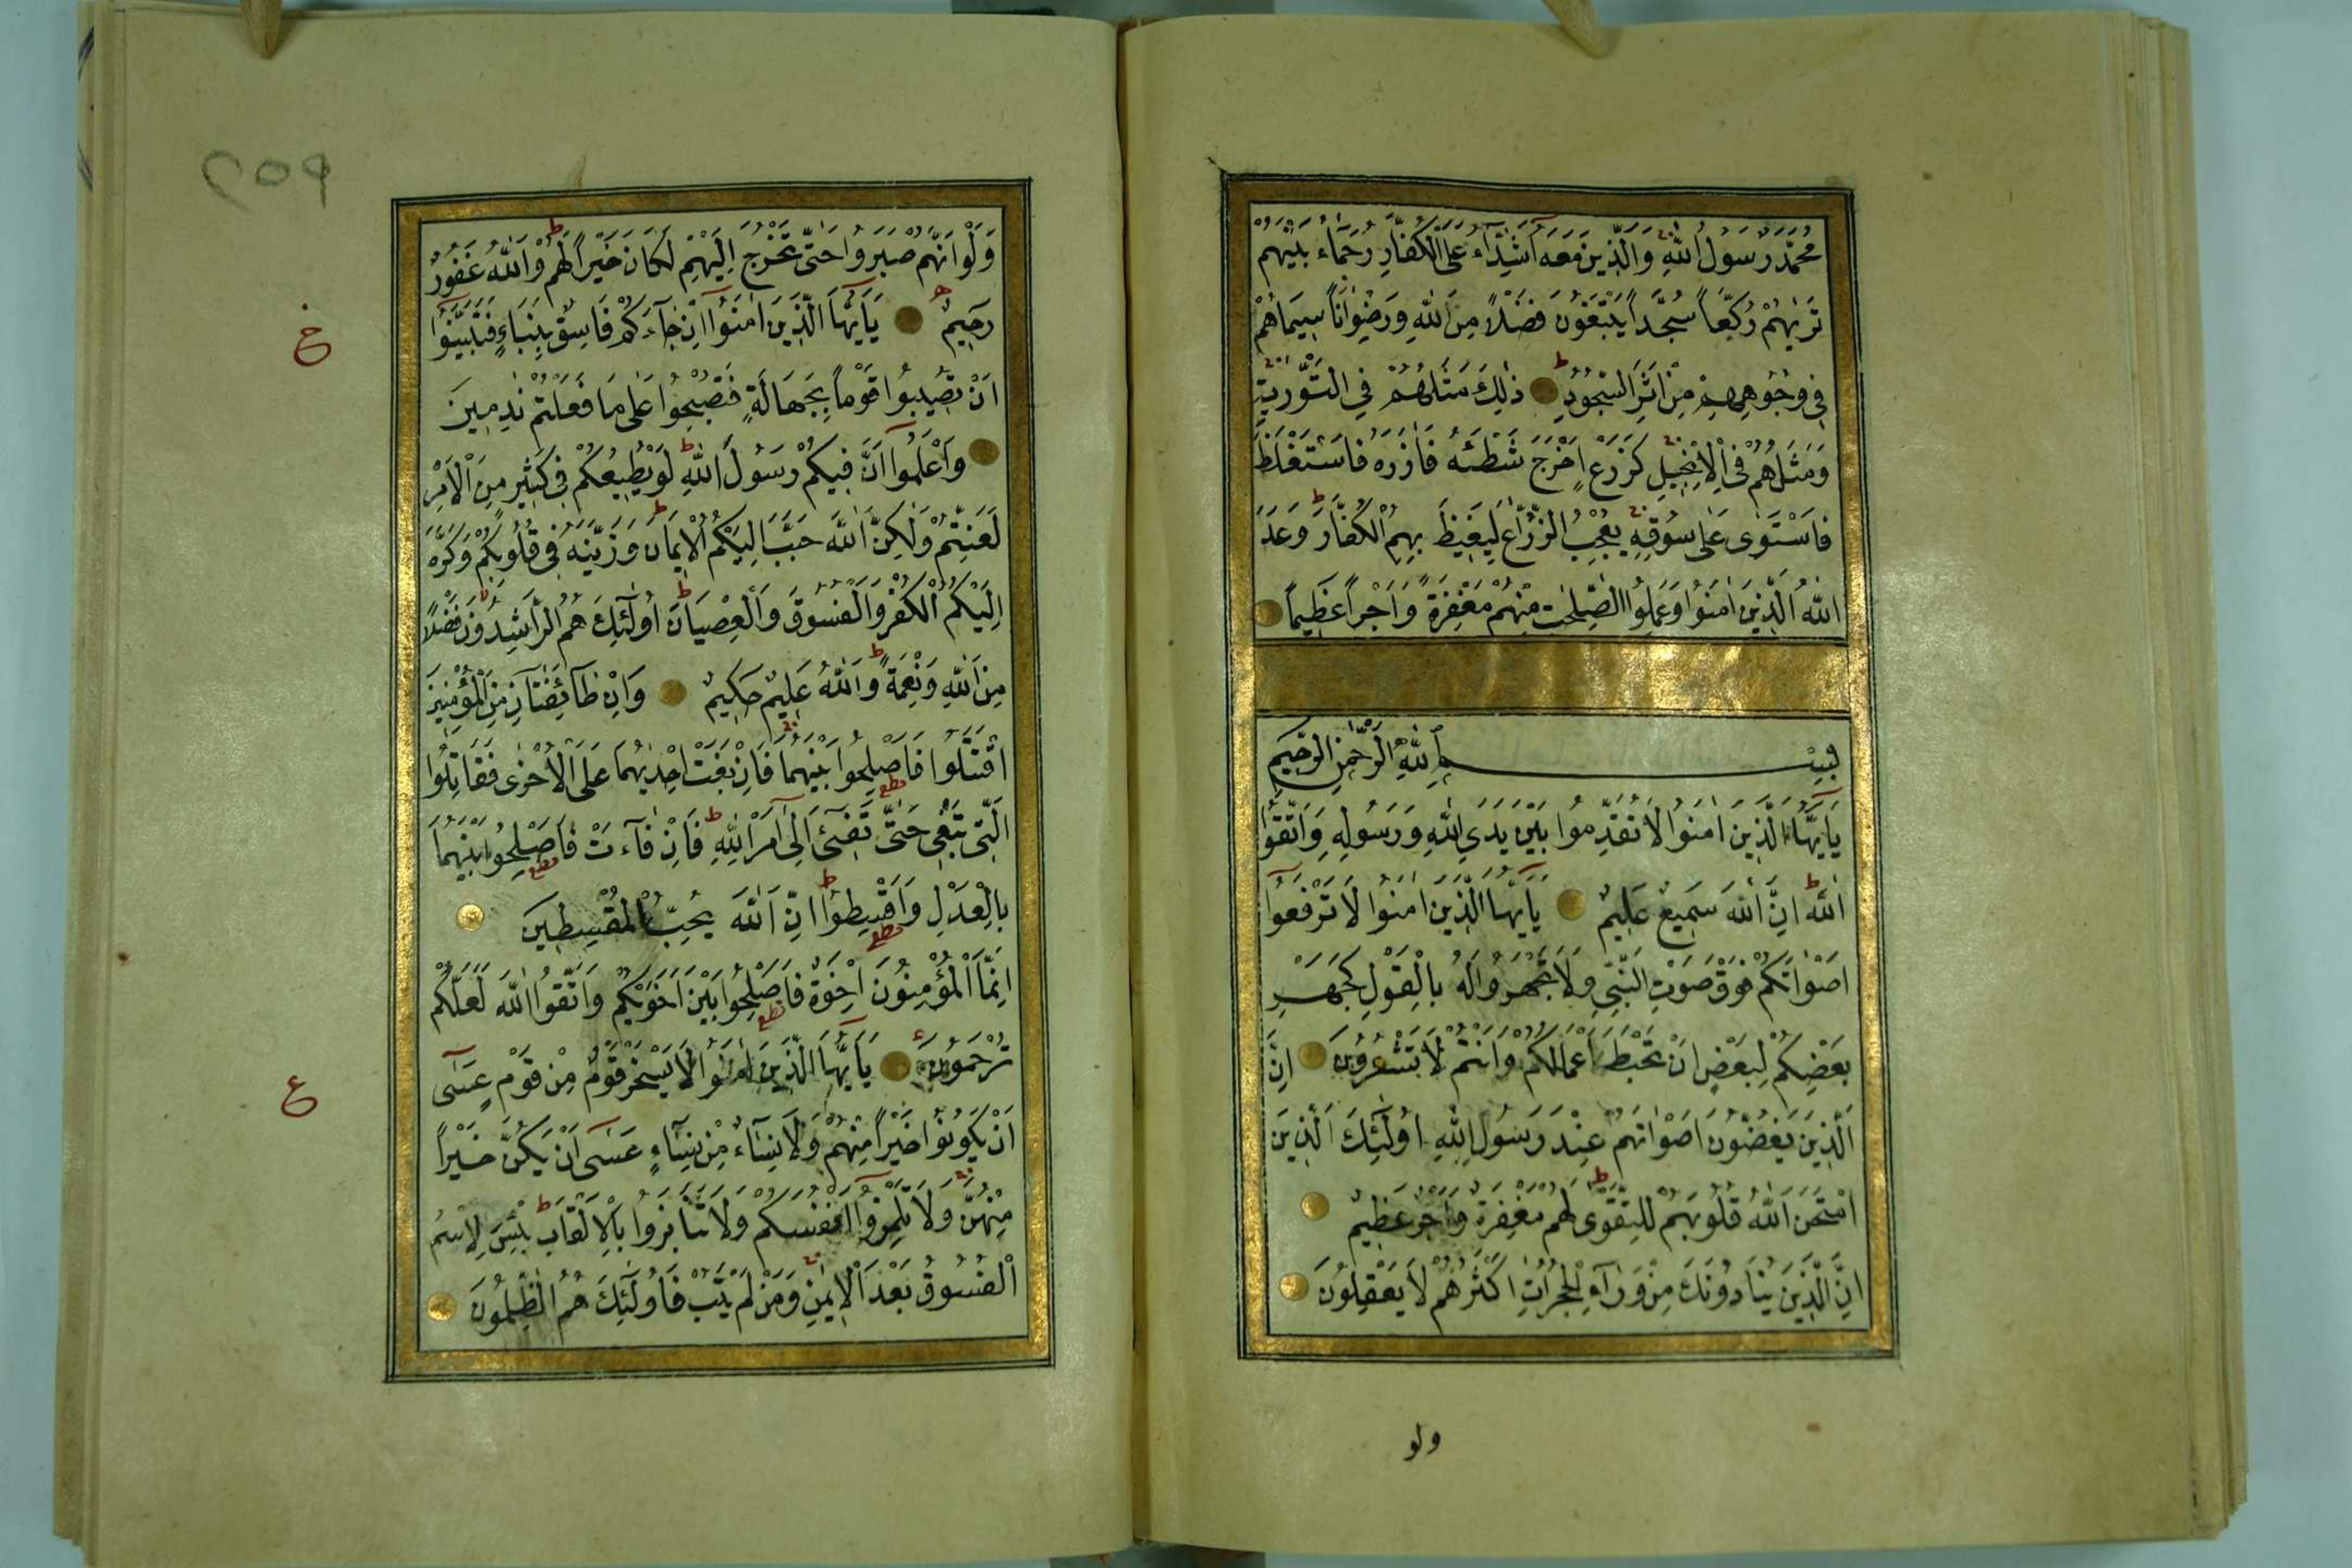 مُحَمَّدٌ رَسُولُ اللّٰهِ وَالَّذِينَ مَعَهُ اَشِدَّآءُ عَلَى الْكُفَّارِ رُحَمَآءُ بَيْنَهُمْ
تَرٰيهُمْ رُكَّعاً سُجَّداً يَبْتَغُونَ فَضْلًا مِنَ اللّٰهِ وَرِضْوَاناً سِيمَاهُمْ
فِي وُجُوهِهِمْ مِنْ اَثَرِ السُّجُودِ ذٰلِكَ مَثَلُهُمْ فِي التَّوْرٰيةِ
وَمَثَلُهُمْ فِي الْاِنْجِيلِ كَزَرْعٍ اَخْرَجَ شَطْئَهُ فَاٰزَرَهُ فَاسْتَغْلَظَ
فَاسْتَوٰى عَلٰى سُوقِهِ يُعْجِبُ الزُّرَّاعَ لِيَغِيظَ بِهِمُ الْكُفَّارَ وَعَدَ
اللّٰهُ الَّذِينَ اٰمَنُوا وَعَمِلُوا الصَّالِحٰتِ مِنْهُمْ مَغْفِرَةً وَاَجْراً عَظِيماً
بِسْمِ اللّٰهِ الرَّحْمٰنِ الرَّحِيمِ
يَآاَيُّهَا الَّذِينَ اٰمَنُوا لَا تُقَدِّمُوا بَيْنَ يَدَيِ اللّٰهِ وَرَسُولِهِ وَاتَّقُوا
اللّٰهَ اِنَّ اللّٰهَ سَمِيعٌ عَلِيمٌ يَآاَيُّهَا الَّذِينَ اٰمَنُوا لَا تَرْفَعُوآ
اَصْوَاتَكُمْ فَوْقَ صَوْتِ النَّبِيِّ وَلَا تَجْهَرُوا لَهُ بِالْقَوْلِ كَجَهْرِ
بَعْضِكُمْ لِبَعْضٍ اَنْ تَحْبَطَ اَعْمَالُكُمْ وَاَنْتُمْ لَا تَشْعُرُونَ اِنَّ
الَّذِينَ يَغُضُّونَ اَصْوَاتَهُمْ عِنْدَ رَسُولِ اللّٰهِ اُولٰٓئِكَ الَّذِينَ
امْتَحَنَ اللّٰهُ قُلُوبَهُمْ لِلتَّقْوٰى لَهُمْ مَغْفِرَةٌ وَاَجْرٌ عَظِيمٌ
اِنَّ الَّذِينَ يُنَادُونَكَ مِنْ وَرَآءِ الْحُجُرَاتِ اَكْثَرُهُمْ لَا يَعْقِلُونَ
ولو
٢٥٩
وَلَوْ اَنَّهُمْ صَبَرُوا حَتّٰى تَخْرُجَ اِلَيْهِمْ لَكَانَ خَيْراً لَهُمْ وَاللّٰهُ غَفُورٌ
رَحِيمٌ يَآاَيُّهَا الَّذِينَ اٰمَنُوآ اِنْ جَآءَكُمْ فَاسِقٌ بِنَبَاءٍ فَتَبَيَّنُوآ
خ
اَنْ تُصِيبُوا قَوْماً بِجَهَالَةٍ فَتُصْبِحُوا عَلٰى مَا فَعَلْتُمْ نٰدِمِينَ
وَاعْلَمُوآ اَنَّ فِيكُمْ رَسُولَ اللّٰهِ لَوْ يُطِيعُكُمْ فِي كَثِيرٍ مِنَ الْاَمْرِ
لَعَنِتُّمْ وَلٰكِنَّ اللّٰهَ حَبَّبَ اِلَيْكُمُ الْاِيمَانَ وَزَيَّنَهُ فِي قُلُوبِكُمْ وَكَرَّهَ
اِلَيْكُمُ الْكُفْرَ وَالْفُسُوقَ وَالْعِصْيَانَ اُولٰٓئِكَ هُمُ الرَّاشِدُونَ فَضْلًا
مِنَ اللّٰهِ وَنِعْمَةً وَاللّٰهُ عَلِيمٌ حَكِيمٌ وَاِنْ طَآئِفَتَانِ مِنَ الْمُؤْمِنِينَ
اقْتَتَلُوا فَاَصْلِحُوا بَيْنَهُمَا فَاِنْ بَغَتْ اِحْدٰيهُمَا عَلَى الْاُخْرٰى فَقَاتِلُوا
الَّتِي تَبْغِي حَتّٰى تَفِيٓءَ اِلٰٓى اَمْرِ اللّٰهِ فَاِنْ فَآءَتْ فَاَصْلِحُوا بَيْنَهُمَا
بِالْعَدْلِ وَاَقْسِطُوا اِنَّ اللّٰهَ يُحِبُّ الْمُقْسِطِينَ
اِنَّمَا الْمُؤْمِنُونَ اِخْوَةٌ فَاَصْلِحُوا بَيْنَ اَخَوَيْكُمْ وَاتَّقُوا اللّٰهَ لَعَلَّكُمْ
تُرْحَمُونَ يَآاَيُّهَا الَّذِينَ اٰمَنُوا لَا يَسْخَرْ قَوْمٌ مِنْ قَوْمٍ عَسٰٓى
ع
اَنْ يَكُونُوا خَيْراً مِنْهُمْ وَلَا نِسَآءٌ مِنْ نِسَآءٍ عَسٰٓى اَنْ يَكُنَّ خَيْراً
مِنْهُنَّ وَلَا تَلْمِزُوآ اَنْفُسَكُمْ وَلَا تَنَابَزُوا بِالْاَلْقَابِ بِئْسَ الِاسْمُ
الْفُسُوقُ بَعْدَ الْاِيمٰنِ وَمَنْ لَمْ يَتُبْ فَاُولٰٓئِكَ هُمُ الظّٰلِمُونَ